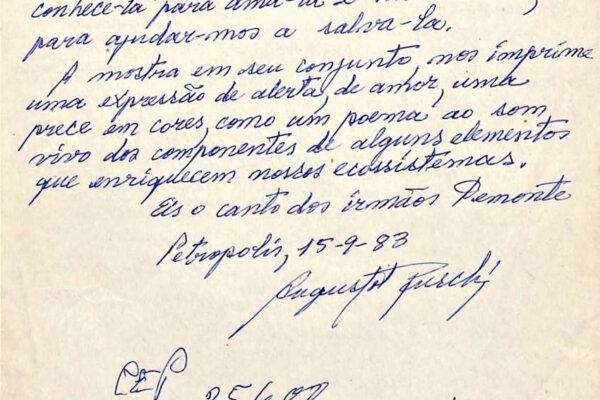 conhecê-la para amá-la e
para ajudar-mos a salva-la.
A mostra em seu conjunto, nos imprime
uma expressão de alerta, de amor, uma
prece em cores, como um poema ao som
vivo dos componentes de alguns elementos
que enriquecem nossos ecossistemas.
Eis o canto dos irmãos Demonte
Petropolis, 15-9-83
Augusto Ruschi
CEP
25600